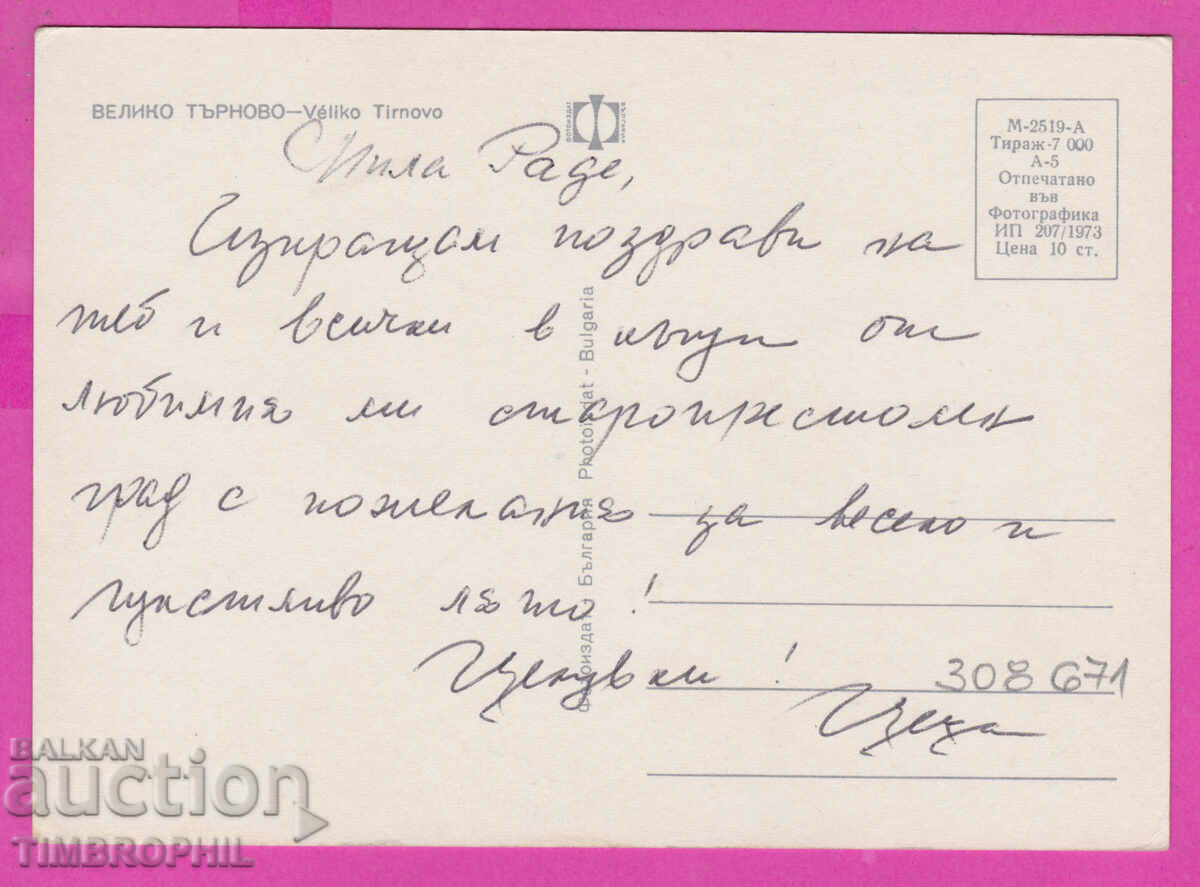 ВЕЛИКО ТЪРНОВО—Véliko Tirnovo
ФОТОИЗДАТ БЪЛГАРИЯ
М-2519-А
Тираж-7 000
А-5
Отпечатано
във
Фотографика
ИП 207/1973
Цена 10 ст.
Мила Раде,
Изпращам поздрави на
теб и всички в къщи от
любимия ми старопрестолен
град с пожелания за весело и
щастливо лято!
Целувки!
Цеца
308671
Фотоиздат - България Photoizdat - Bulgaria
BALKAN
auction
TIMBROPHIL